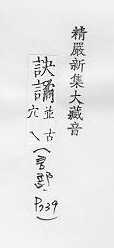 精嚴新集大藏音
訣譎並古穴(言部, P739)